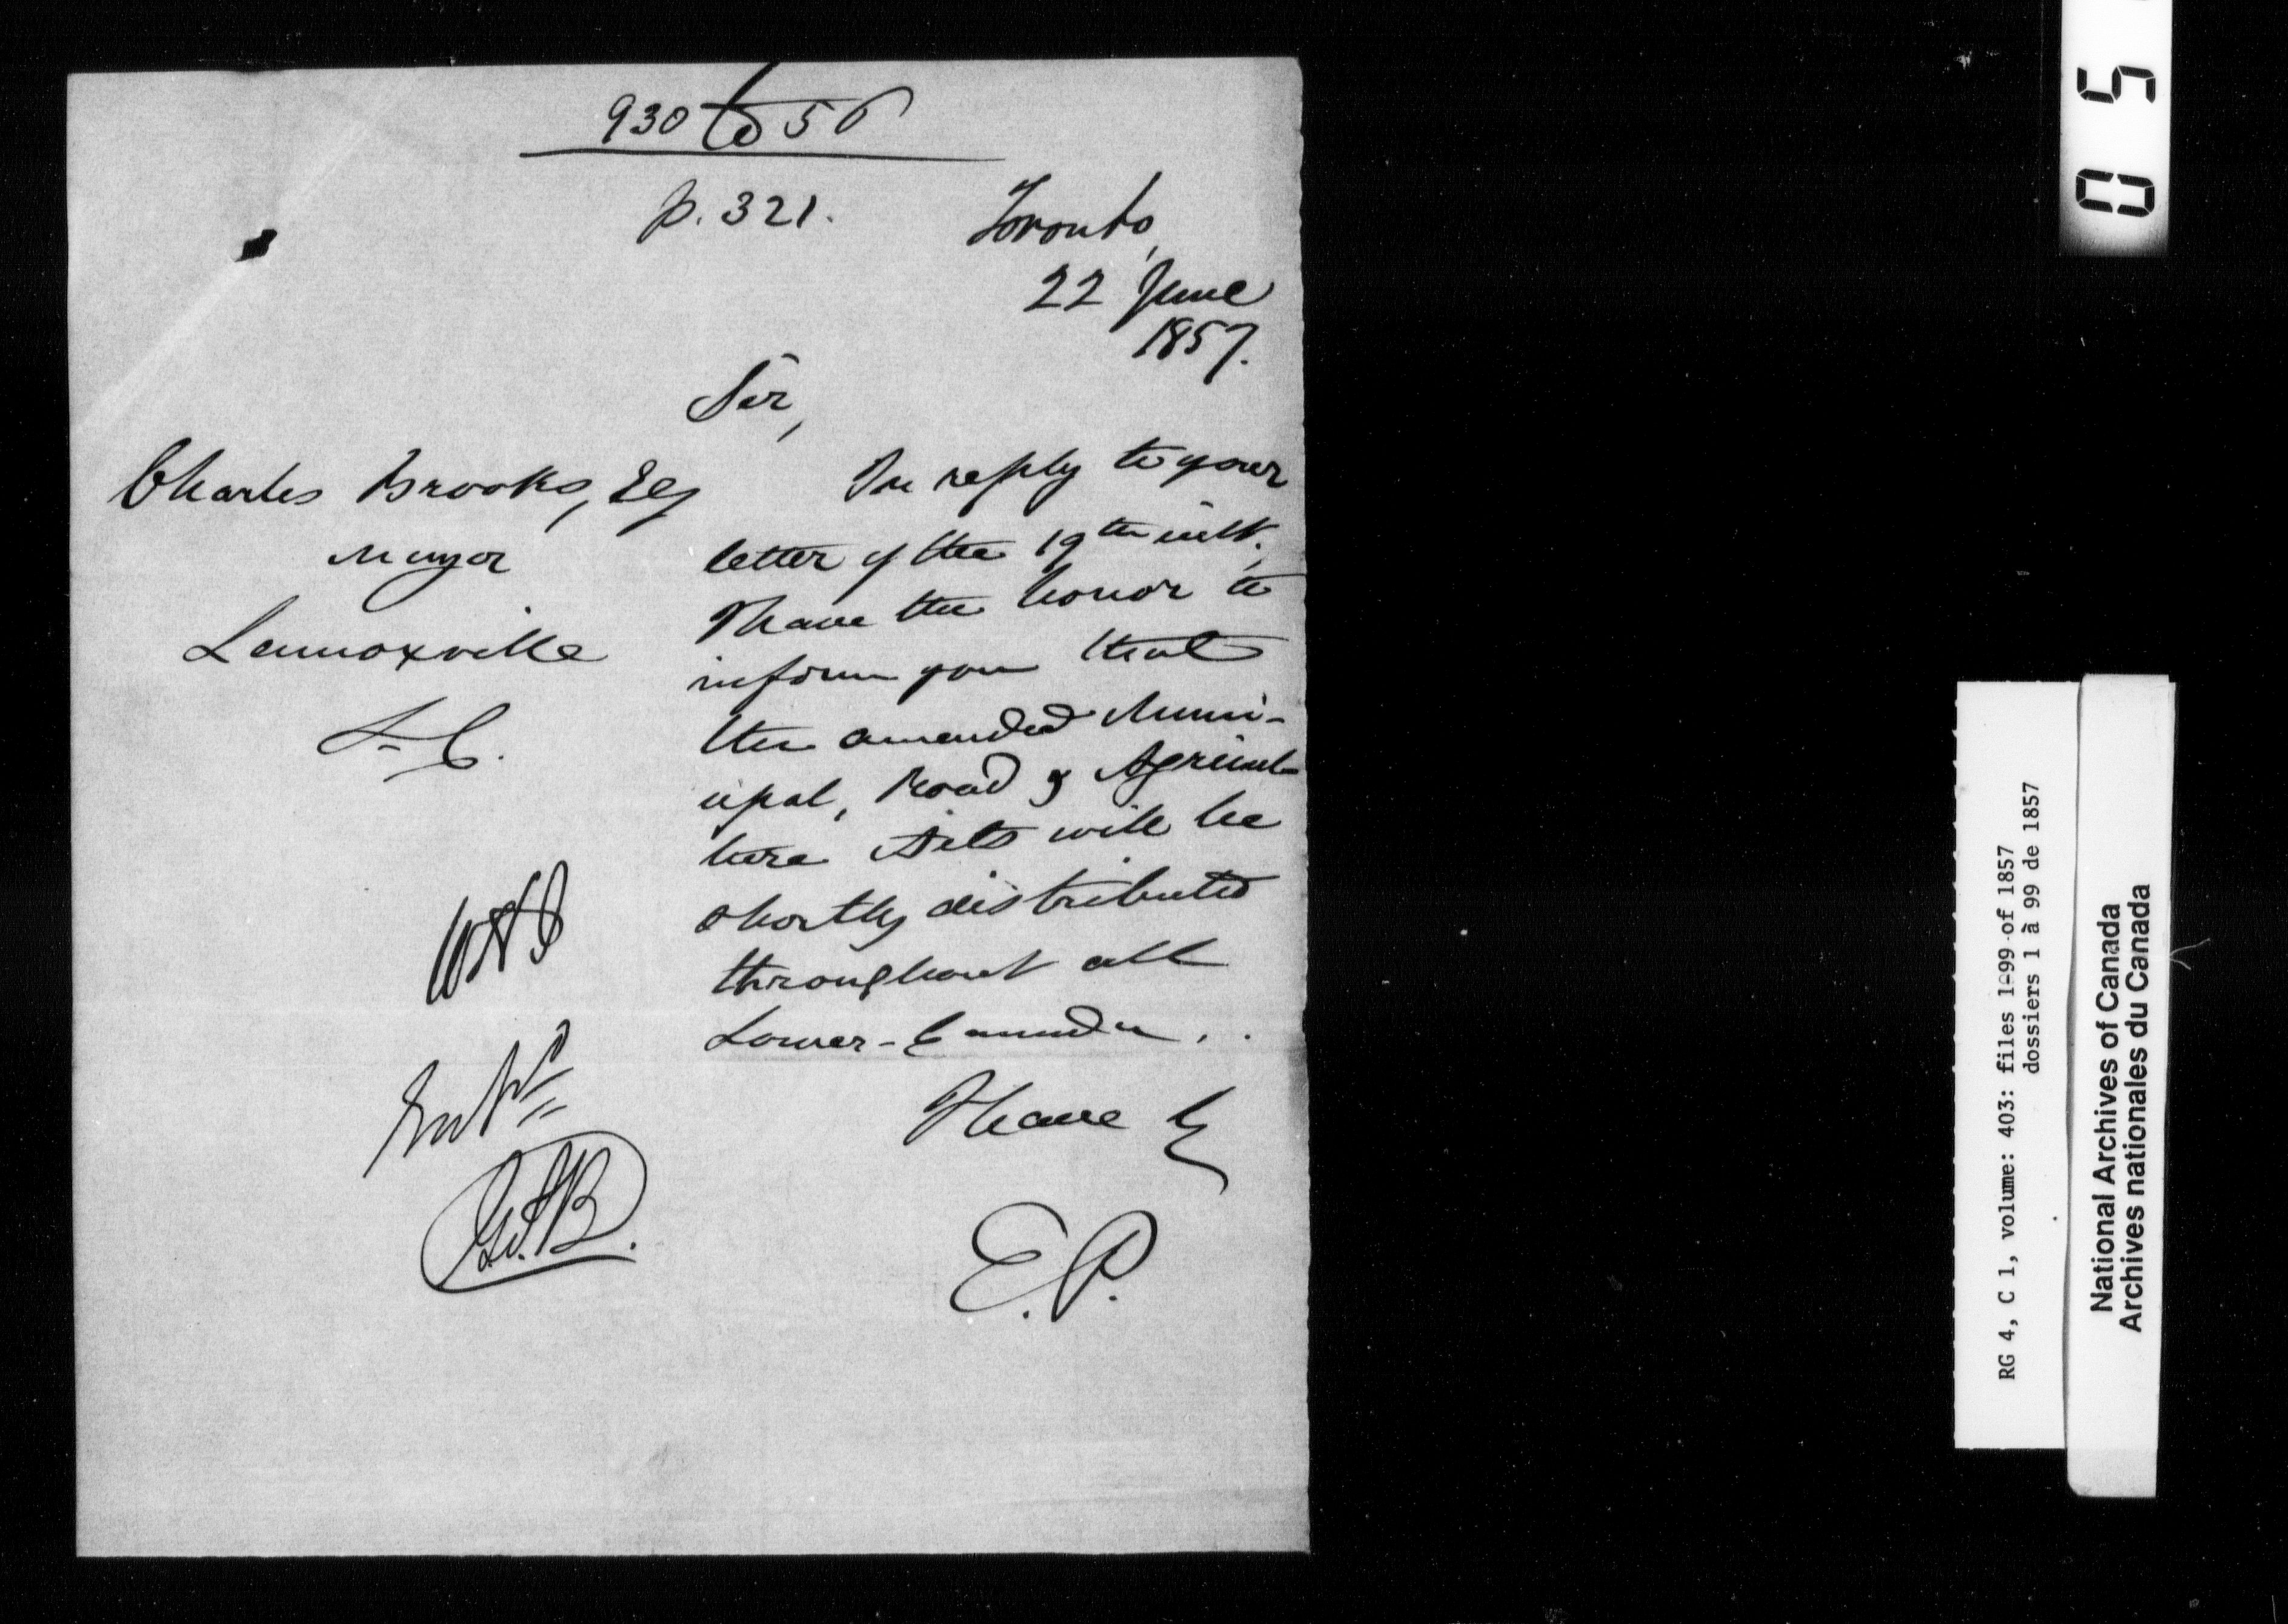 930 to 56
p. 321.
Toronto,
22 June
1857.
Sir,
Charles Brooks, Esq
Mayor
Lennoxville
L. C.
In reply to your
letter of the 19th inst.,
I have the honor to
inform you that
the amended Muni-
cipal, Road & Agricul-
ture Acts will be
shortly distributed
throughout all
Lower-Canada..
I have &
E.P.
Entd
05
RG 4, C 1, volume: 403: files 1-99 of 1857
dossiers 1 à 99 de 1857
National Archives of Canada
Archives nationales du Canada